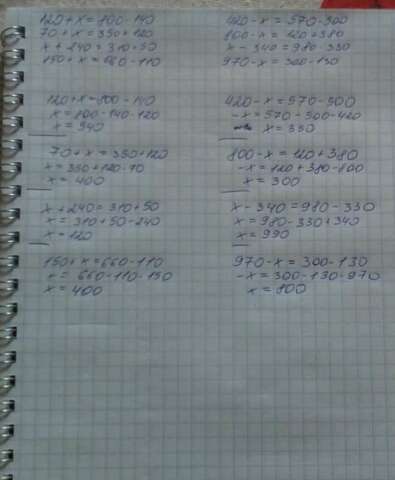 120+x=800-140
70+x=350+120
x+240=310+50
150+x=660-110
420-x=570-500
800-x=120+380
x-340=980-330
970-x=300-130
120+x=800-140
x=800-140-120
x=540
70+x=350+120
x=350+120-70
x=400
x+240=310+50
x=310+50-240
x=120
150+x=660-110
x=660-110-150
x=400
420-x=570-500
-x=570-500-420
x=350
800-x=120+380
-x=120+380-800
x=300
x-340=980-330
x=980-330+340
x=990
970-x=300-130
-x=300-130-970
x=800